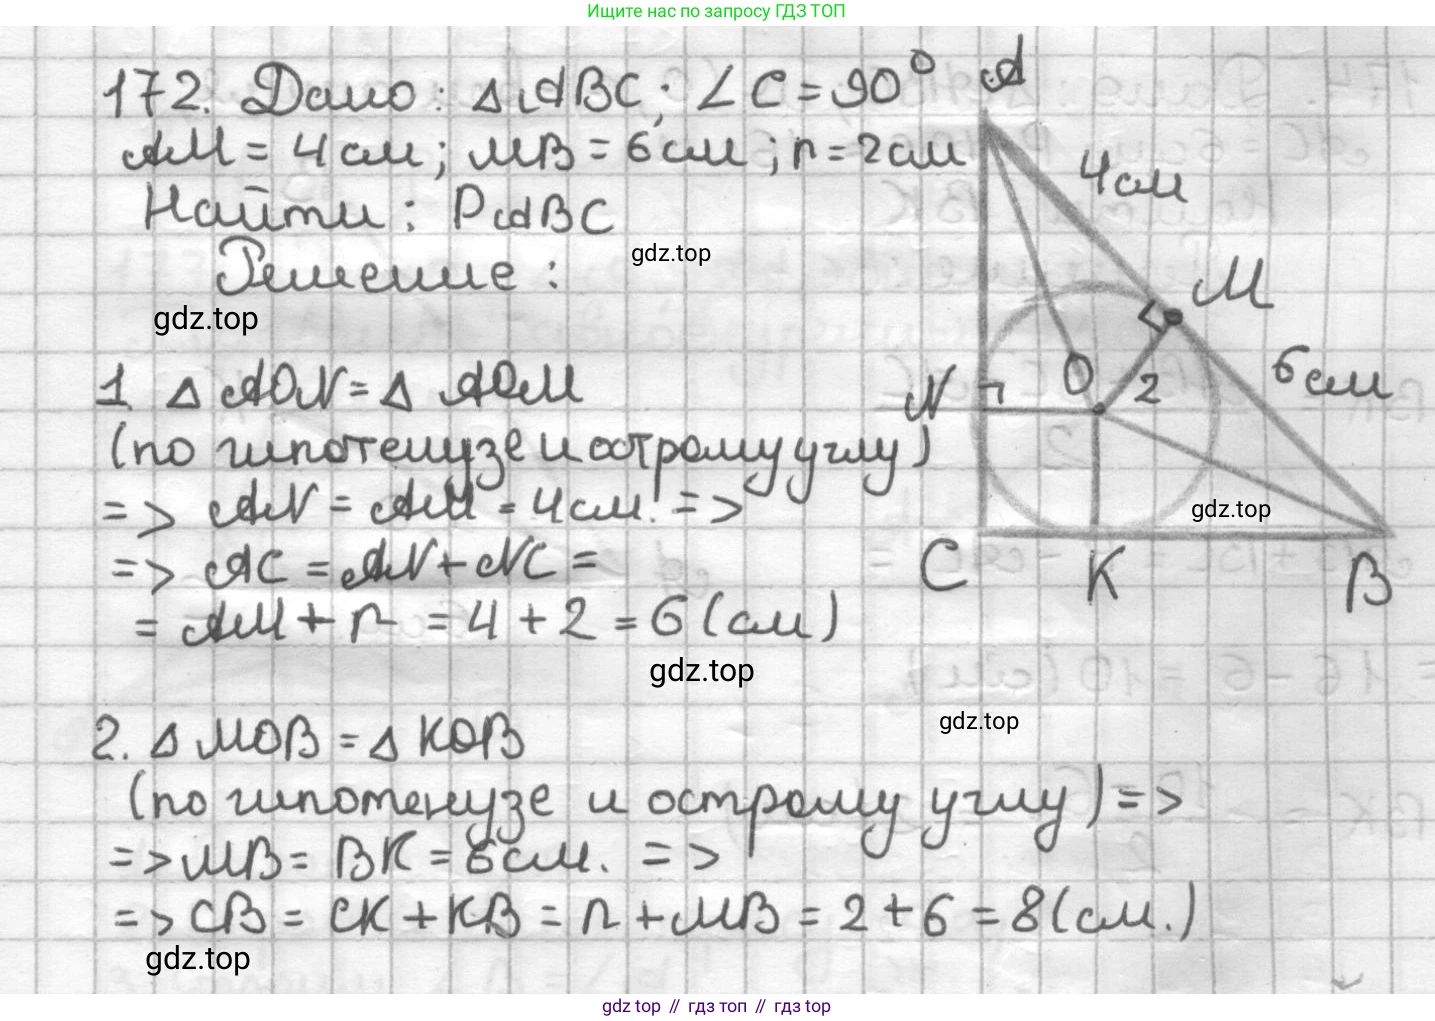 Ищите нас по запросу ГДЗ ТОП
172. Дано: △ABC; ∠C=90°
AM = 4см; MB = 6см; r = 2см
Найти: PABC
Решение:
gdz.top
gdz.top
A
4см
M
6см
N
O
2
2
gdz.top
C
K
B
1. △AON = △AOM
(по гипотенузе и острому углу)
=> AN = AM = 4см. =>
=> AC = AN + NC =
= AM + r = 4 + 2 = 6 (см)
gdz.top
gdz.top
2. △MOB = △KOB
(по гипотенузе и острому углу) =>
=> MB = BK = 6см. =>
=> CB = CK + KB = r + MB = 2 + 6 = 8 (см.)
gdz.top
gdz top // гдз топ // гдз top